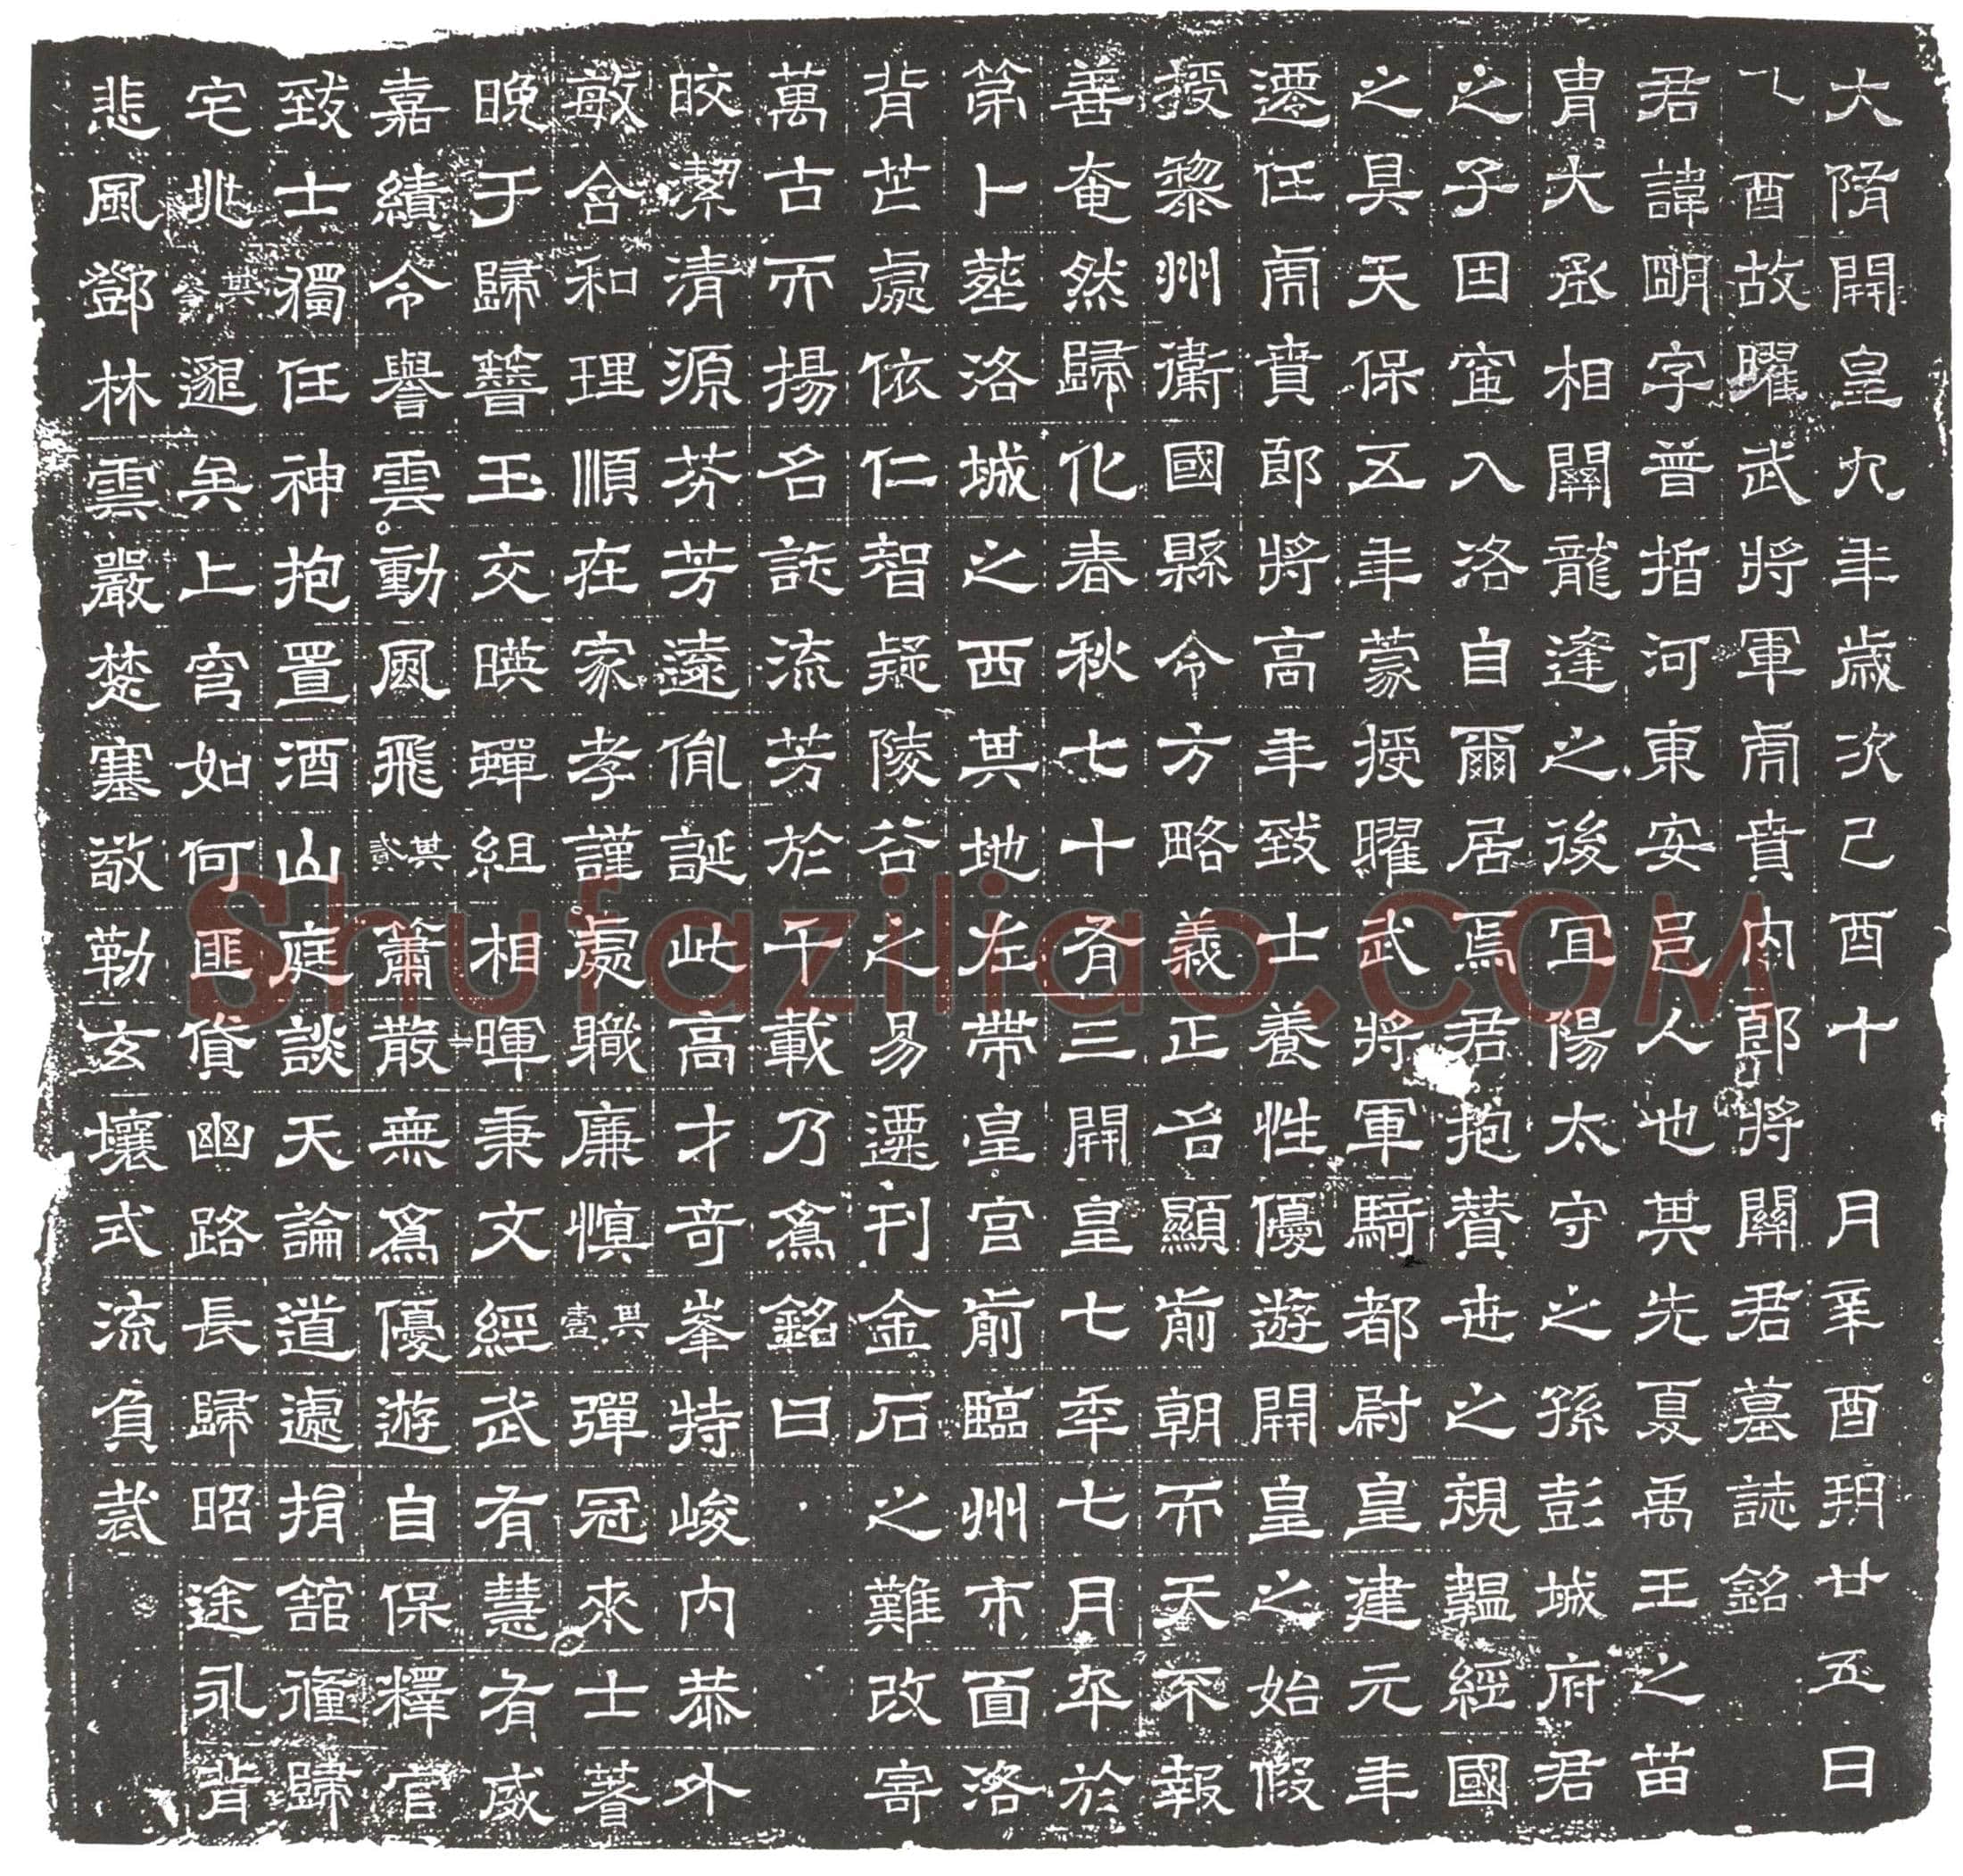 大隋開皇九年歲次己酉十月辛酉朔廿五日
乙酉故曜武將軍虎賁內郎將關君墓誌銘
君諱明字普指河東安邑人也其先夏禹王之苗
胄大丞相關龍逢之後宜陽太守之孫彭城府君
之子因宦入洛自爾居焉君抱贊世之規韞經國
之具天保五年蒙授曜武將軍騎都尉皇建元年
遷任虎賁郎將高年致士養性優遊開皇之始假
授黎州衛國縣令方略義正名顯前朝而天不報
善奄然歸化春秋七十有三開皇七年七月卒於
第卜葬洛城之西其地左帶皇宮前臨州市面洛
背芒處依仁智疑陵谷之易遷刊金石之難改寄
萬古而揚名託流芳於千載乃為銘曰
皎潔清源芬芳遠胤誕此高才奇峯特峻內恭外
敏含和理順在家孝謹處職廉慎其壹彈冠來士著
晚于歸簪玉交暎蟬組相暉秉文經武有慧有威
嘉績令譽雲動風飛其貳蕭散無為優遊自保釋官
致士獨任神抱置酒山庭談天論道遽捐舘僮歸
宅兆其叁邈矣上穹如何匪眘幽路長歸昭途永背
悲風鄧林雲嚴楚塞敬勒玄壤式流貞裁
Shufaziliao.COM